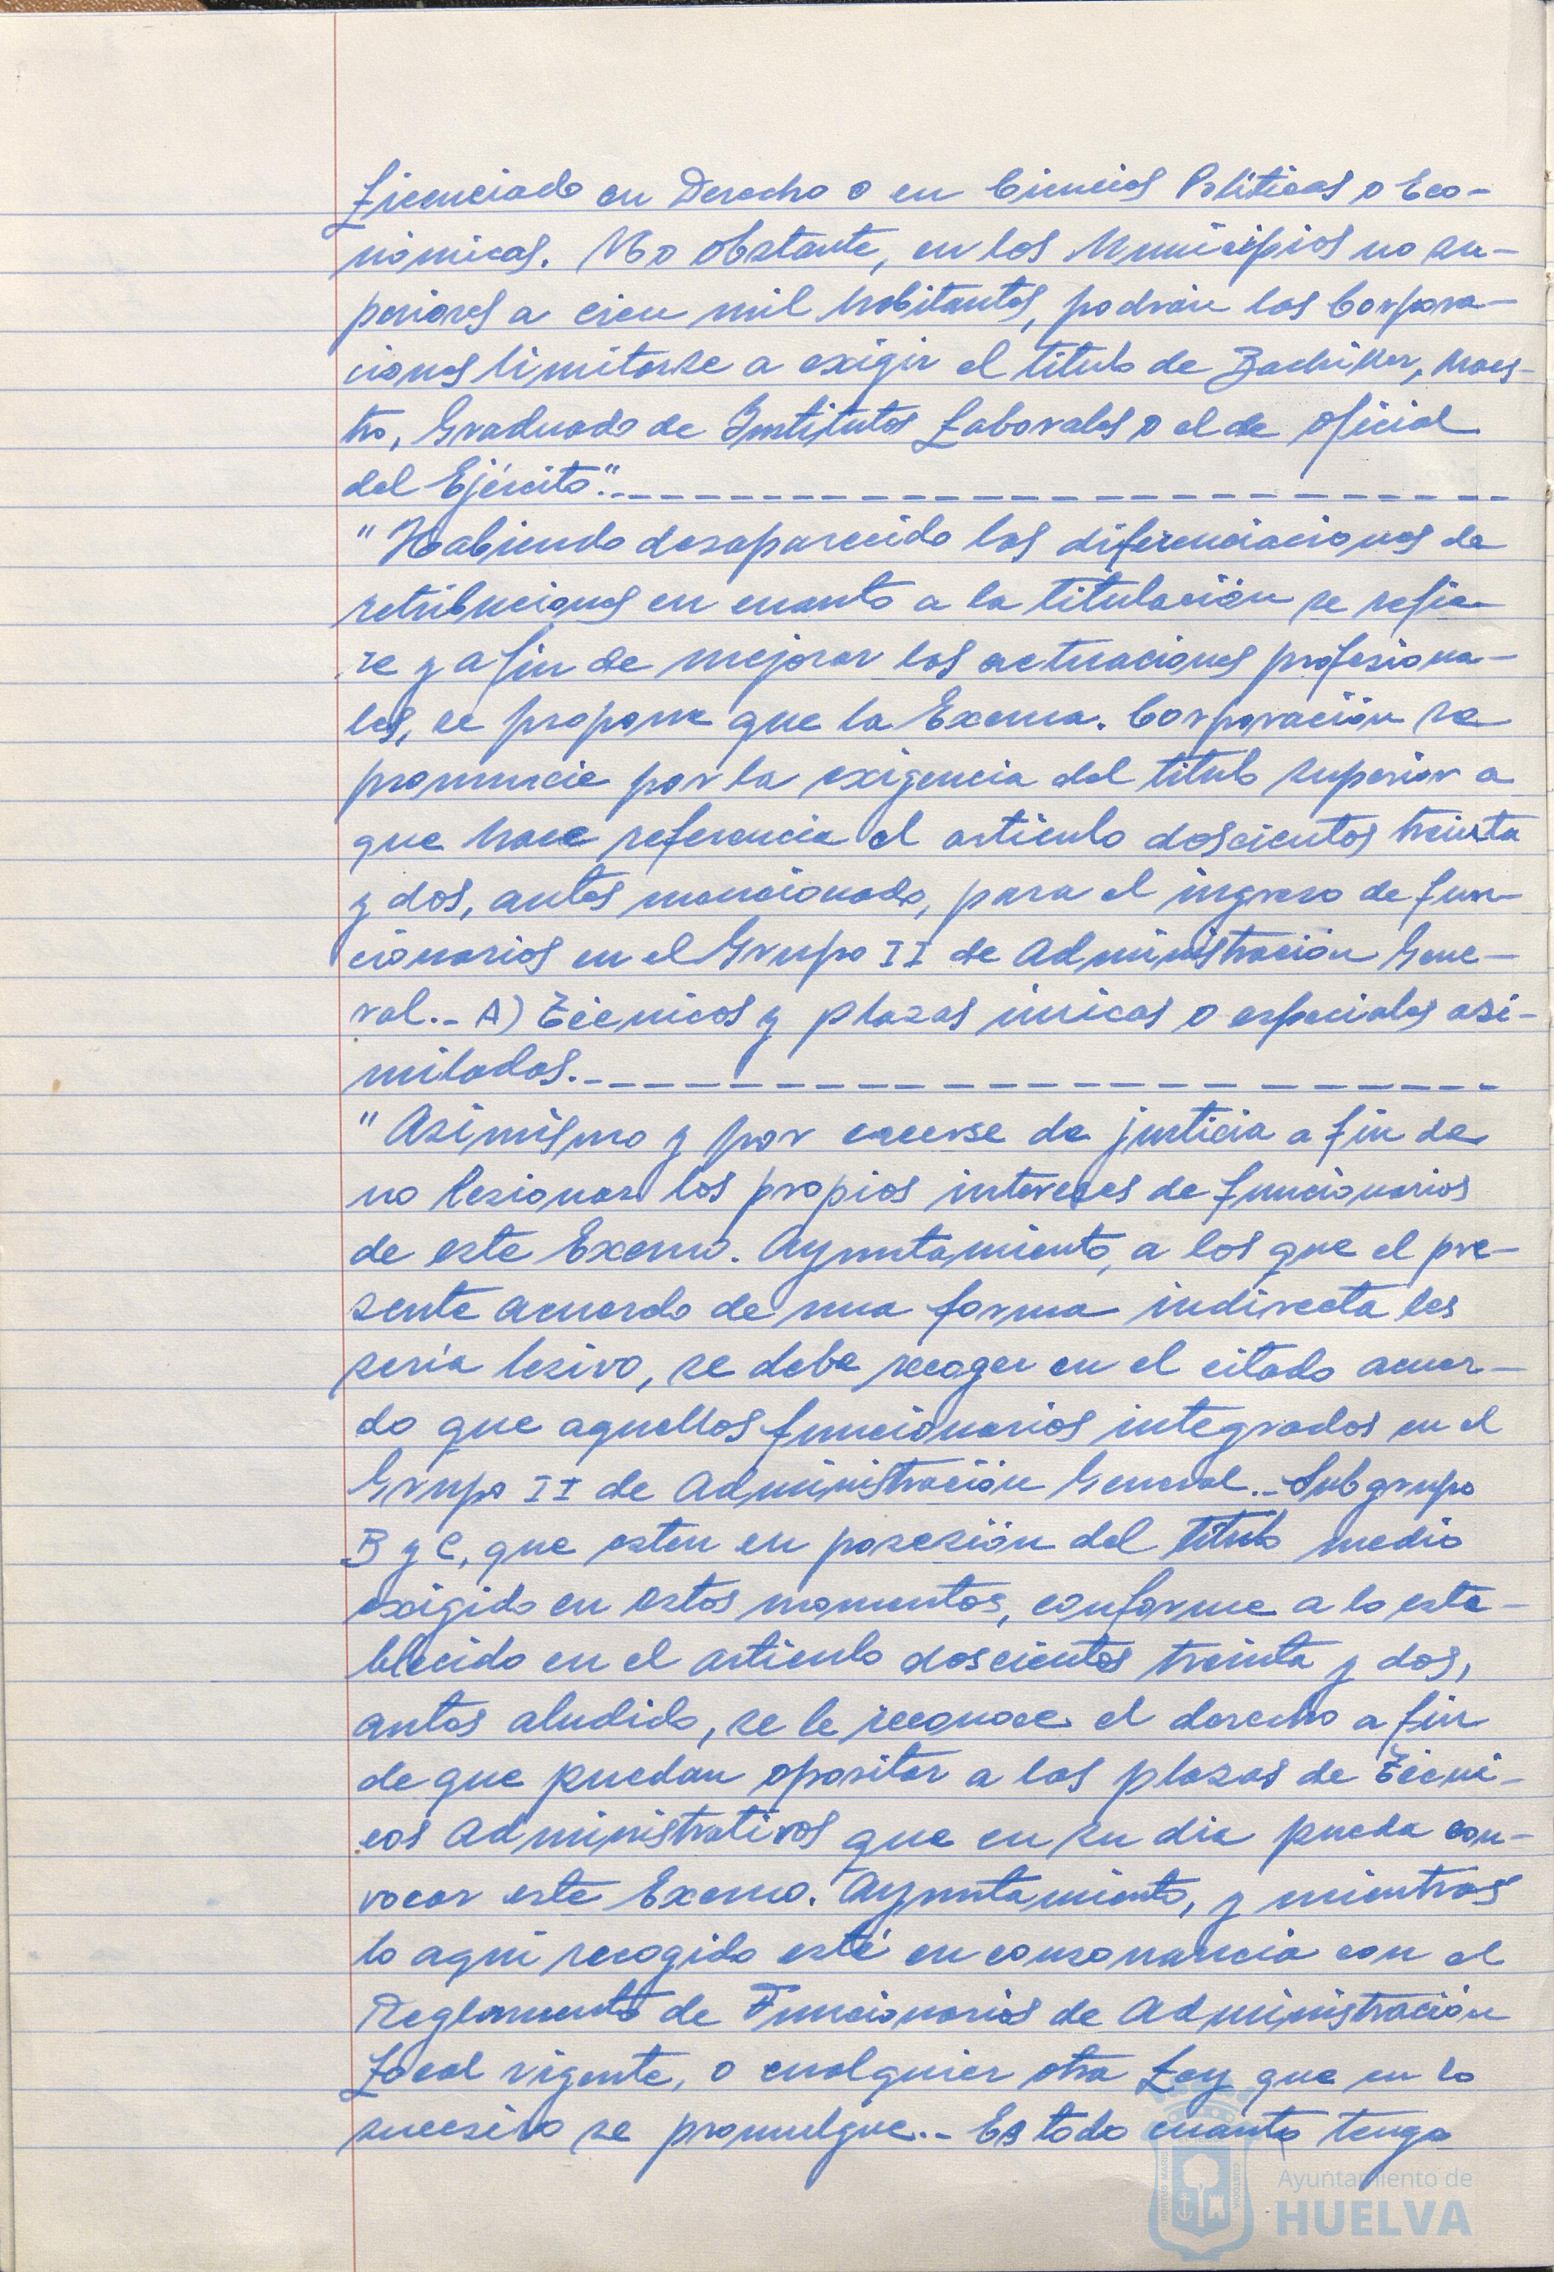 Licenciado en Derecho o en Ciencias Políticas o Eco-
nómicas. No obstante, en los Municipios no su-
periores a cien mil habitantes, podrán las Corpora-
ciones limitarse a exigir el titulo de Bachiller, Maes-
tro, Graduado de Institutos Laborales o el de oficial
del Ejército".-
"Habiendo desaparecido las diferenciaciones de
retribuciones en cuanto a la titulación se refie-
re y a fin de mejorar las actuaciones profesiona-
les, se propone que la Excma. Corporación se
pronuncie por la exigencia del titulo superior a
que hace referencia el articulo doscientos treinta
y dos, antes mencionado, para el ingreso de fun-
cionarios en el Grupo II de Administración Gene-
ral.- A) Técnicos y plazas únicas o especiales asi-
miladas.-
"Asimismo y por
de justicia a fin de
no lesionar los propios intereses de funcionarios
de este Excmo. Ayuntamiento, a los que el pre-
sente acuerdo de una forma indirecta les
sería lesivo, se debe recoger en el citado acuer-
do que aquellos funcionarios integrados en el
Grupo II de Administración General.- Subgrupo
B y C, que esten en posesión del titulo medio
exigido en estos momentos, conforme a lo esta-
blecido en el articulo doscientos treinta y dos,
antes aludido, se le reconoce el derecho a fin
de que puedan opositar a las plazas de Técni-
cos Administrativos que en su dia pueda con-
vocar este Excmo. Ayuntamiento, y mientras
lo aqui recogido esté en consonancia con el
Reglamento de Funcionarios de Administración
Local vigente, o cualquier otra Ley que en lo
sucesivo se promulgue.- Es todo cuanto tengo
Ayuntamiento de
HUELVA